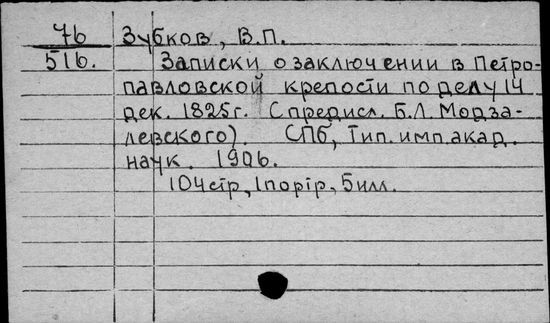 76 Зубков, В.П.
516. Записки о заключении в Петро-
павловской крепости по делу 14
дек. 1825г. С предисл. Б.Л. Модза-
левского). СПб, Тип. имп. акад.
наук. 1906.
104 стр, 1 портр, 5 илл.